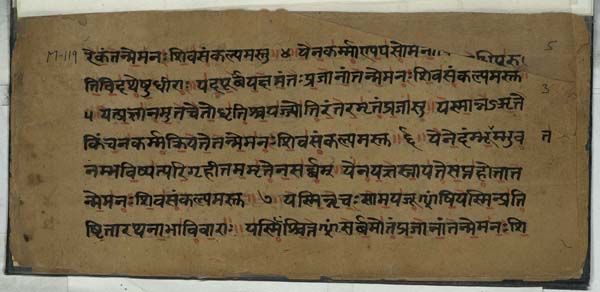 M-119 रेकंतन्मेमनः शिवसंकल्पमस्तु ४ येनकर्म्माण्यपसोमना
तिविदथेषुधीराः यदपूर्वंयक्षमंतःप्रजानांतन्मेमनः शिवसंकल्पमस्तु
५ यत्प्रज्ञानमुतचेतोधृतिश्चयज्योतिरंतरमृतंप्रजासु यस्मान्नऽऋते
किंचनकर्म्मक्रियतेतन्मेमनः शिवसंकल्पमस्तु ६ येनेदंभूतंभुव
नम्भविष्यत्परिगृहीतममृतेनसर्व्वम् येनयज्ञस्तायतेसप्तहोतात
न्मेमनः शिवसंकल्पमस्तु ७ यस्मिन्नृचः सामयजूᳪषियस्मिन्प्रति
ष्ठितारथनाभाविवाराः यस्मिंश्चित्तᳪसर्वमोतंप्रजानांतन्मेमनः शि
5
3
न